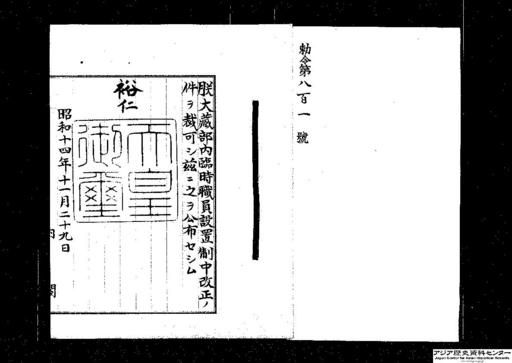 勅令第八百一號
朕大藏部内臨時職員設置制中改正ノ
件ヲ裁可シ茲ニ之ヲ公布セシム
裕仁
天皇
御璽
昭和十四年十一月二十九日
内閣
アジア歴史資料センター
Japan Center for Asian Historical Records